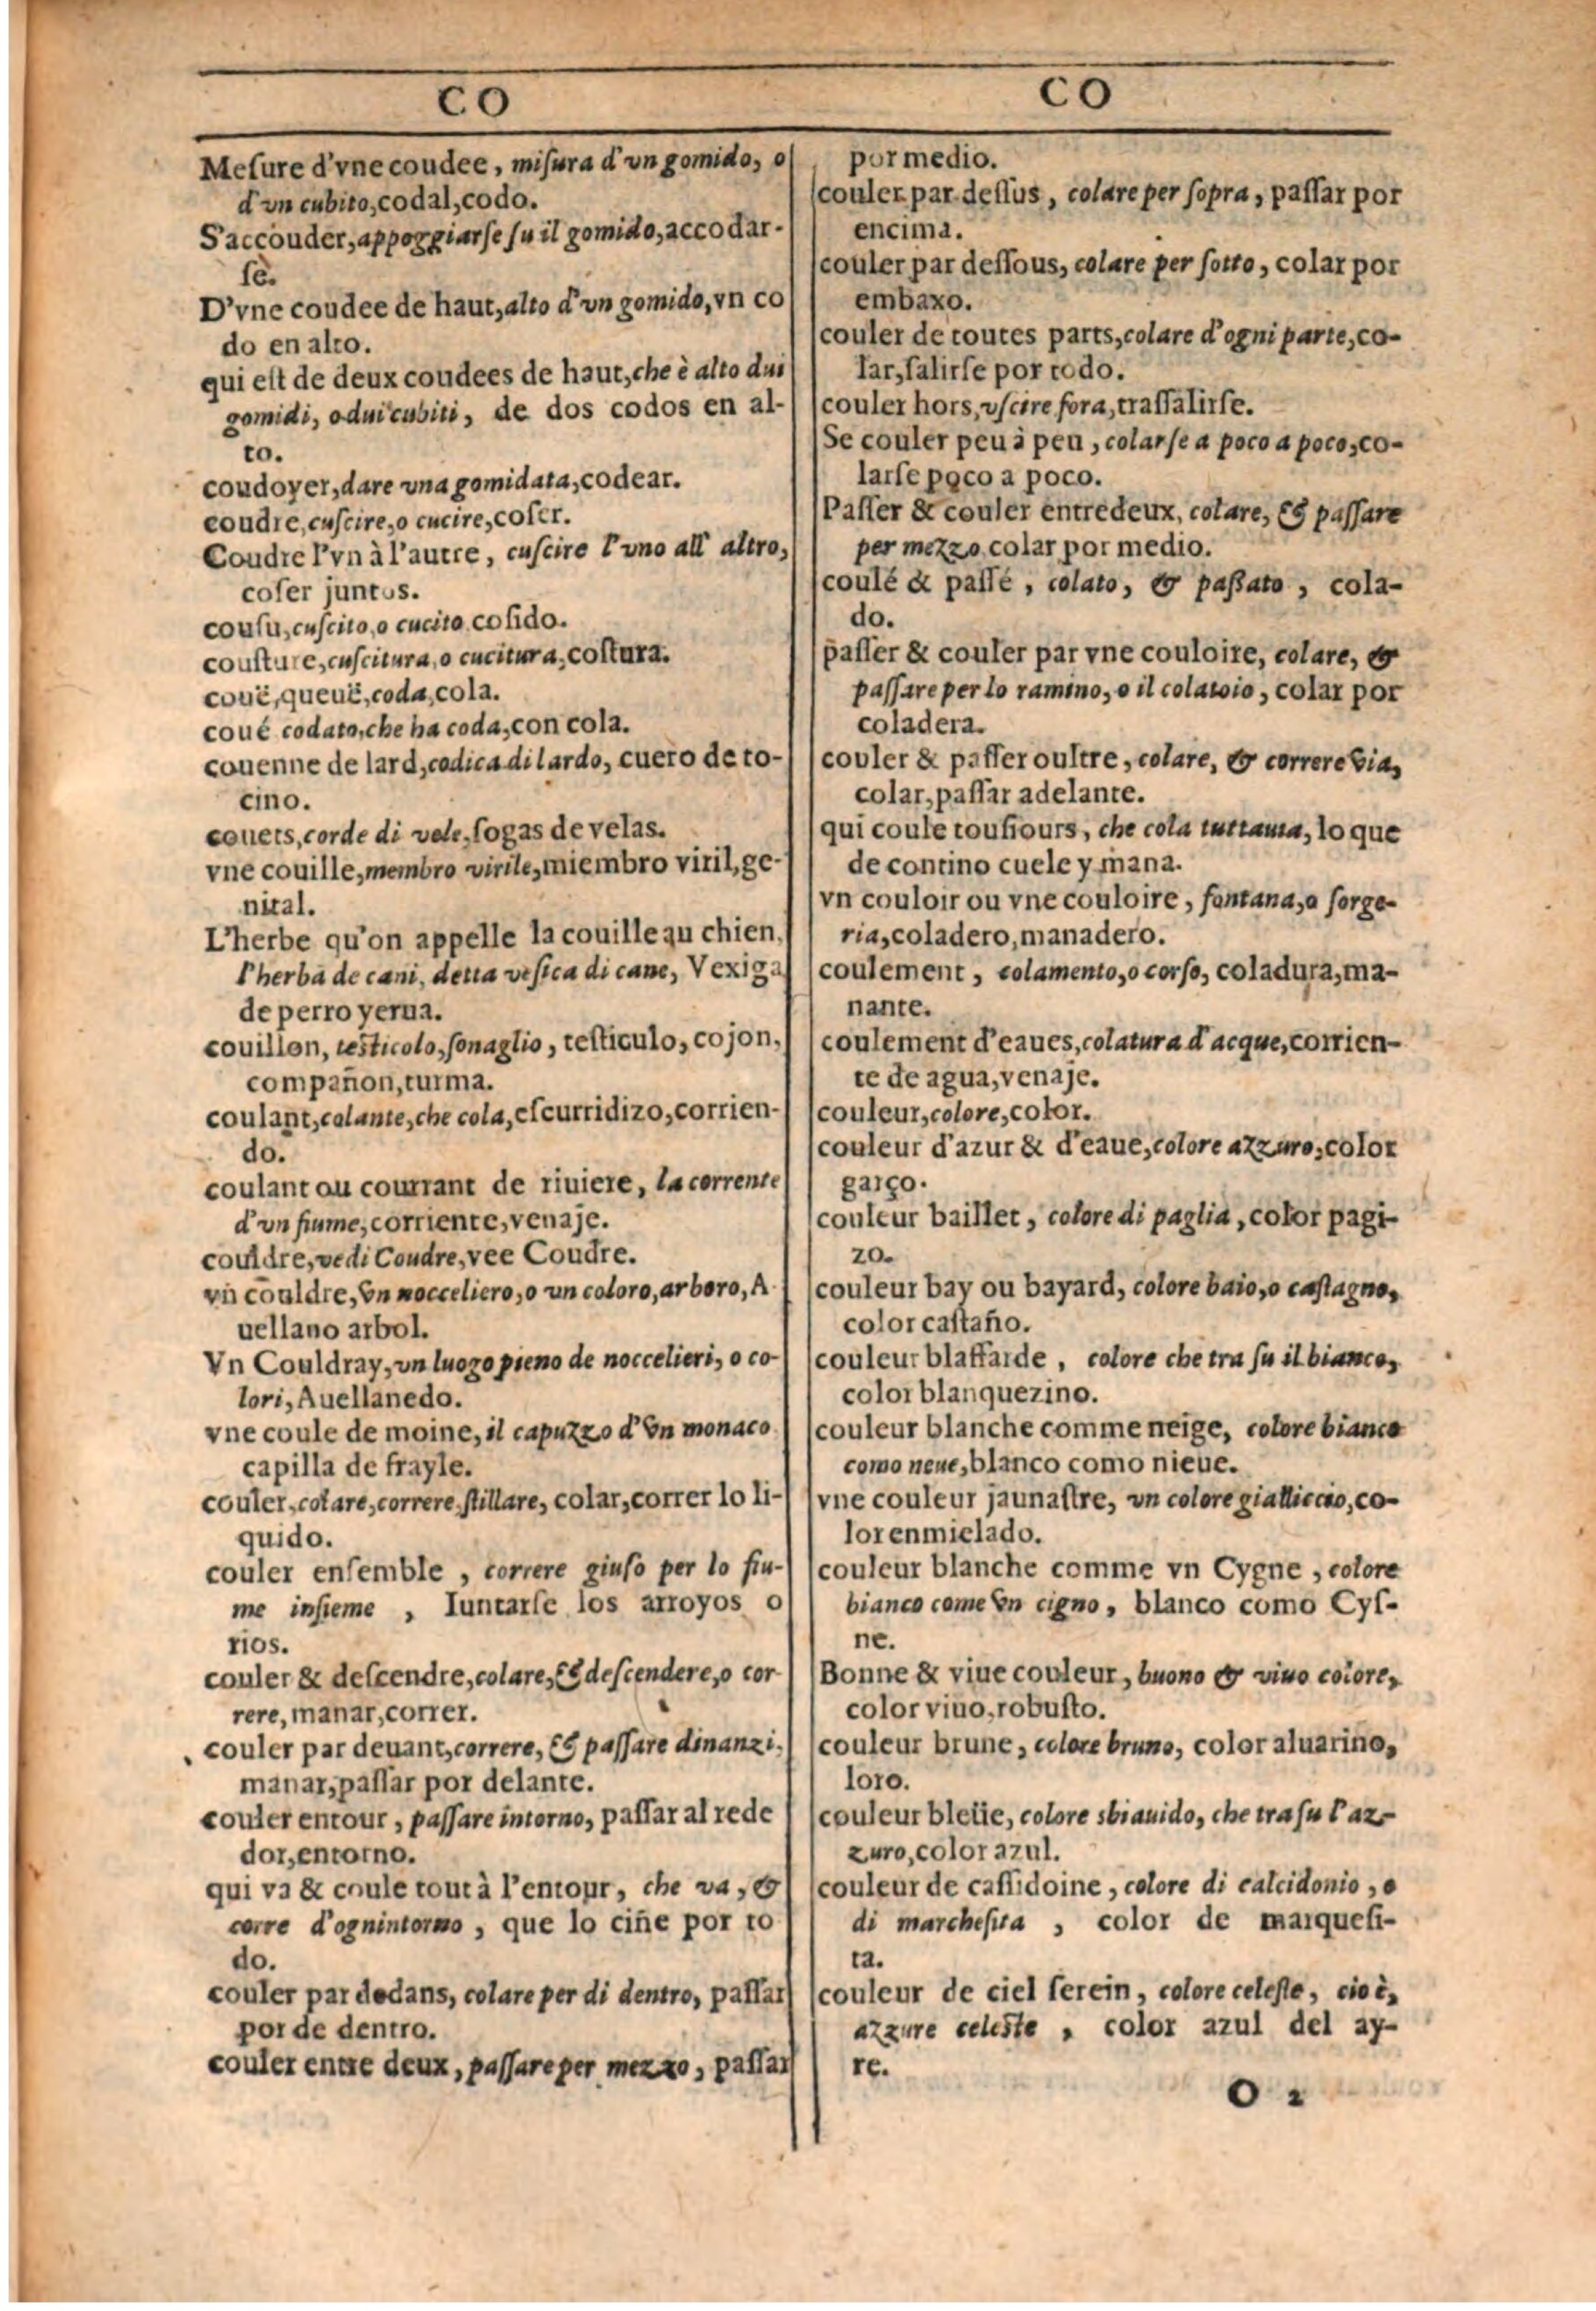 CO
Meſure d'vne coudee, miſura d'vn gomido, o
d'vn cubito, codal, codo.
S'accouder, appoggiarſe ſu il gomido, accodar-
ſè.
D'vne coudee de haut, alto d'vn gomido, vn co
do en alto.
qui eſt de deux coudees de haut, che è alto dui
gomidi, o dui cubiti, de dos codos en al-
to.
coudoyer, dare vna gomidata, codear.
coudre, cuſcire, o cucire, coſer.
Coudre l'vn à l'autre, cuſcire l'vno all' altro,
coſer juntos.
couſu, cuſcito, o cucito coſido.
couſture, cuſcitura, o cucitura, coſtura.
couë, queuë, coda, cola.
coué codato, che ha coda, con cola.
couenne de lard, codica di lardo, cuero de to-
cino.
couets, corde di vele, ſogas de velas.
vne couille, membro virile, miembro viril, ge-
nital.
L'herbe qu'on appelle la couille au chien,
l'herba de cani, detta veſica di cane, Vexiga
de perro yerua.
couillon, teſticolo, ſonaglio, teſticulo, cojon,
compañon, turma.
coulant, colante, che cola, eſcurridizo, corrien-
do.
coulant ou courrant de riuiere, la corrente
d'vn fiume, corriente, venaje.
couldre, vedi Coudre, vee Coudre.
vn couldre, vn nocceliero, o vn coloro, arboro, A
uellano arbol.
Vn Couldray, vn luogo pieno de noccelieri, o co-
lori, Auellanedo.
vne coule de moine, il capuzzo d'vn monaco
capilla de frayle.
couler, colare, correre ſtillare, colar, correr lo li-
quido.
couler enſemble, correre giuſo per lo fiu-
me inſieme, Iuntarſe los arroyos o
rios.
couler & deſcendre, colare, & deſcendere, o cor
rere, manar, correr.
couler par deuant, correre, & paſſare dinanzi,
manar, paſſar por delante.
couler entour, paſſare intorno, paſſar al rede
dor, entorno.
qui va & coule tout à l'entour, che va, &
corre d'ognintorno, que lo ciñe por to
do.
couler par dedans, colare per di dentro, paſſar
por de dentro.
couler entre deux, paſſare per mezzo, paſſar
CO
por medio.
couler par deſſus, colare per ſopra, paſſar por
encima.
couler par deſſous, colare per ſotto, colar por
embaxo.
couler de toutes parts, colare d'ogni parte, co-
lar, ſalirſe por todo.
couler hors, vſcire fora, traſſalirſe.
Se couler peu à peu, colarſe a poco a poco, co-
larſe poco a poco.
Paſſer & couler entredeux, colare, & paſſare
per mezzo colar por medio.
coulé & paſſé, colato, & paſſato, cola-
do.
paſſer & couler par vne couloire, colare, &
paſſare per lo ramino, o il colatoio, colar por
coladera.
couler & paſſer oultre, colare, & correre via,
colar, paſſar adelante.
qui coule touſiours, che cola tuttauia, lo que
de contino cuele y mana.
vn couloir ou vne couloire, fontana, o ſorge-
ria, coladero, manadero.
coulement, colamento, o corſo, coladura, ma-
nante.
coulement d'eaues, colatura d'acque, corrien-
te de agua, venaje.
couleur, colore, color.
couleur d'azur & d'eaue, colore azzuro, color
garço.
couleur baillet, colore di paglia, color pagi-
zo.
couleur bay ou bayard, colore baio, o caſtagno,
color caſtaño.
couleur blaffarde, colore che tra ſu il bianco,
color blanquezino.
couleur blanche comme neige, colore bianco
como neue, blanco como nieue.
vne couleur jaunaſtre, vn colore gialliccio, co-
lor enmielado.
couleur blanche comme vn Cygne, colore
bianco come vn cigno, blanco como Cyſ-
ne.
Bonne & viue couleur, buono & viuo colore,
color viuo, robuſto.
couleur brune, colore bruno, color aluarino,
loro.
couleur bleüe, colore sbiauido, che tra ſu l'az-
zuro, color azul.
couleur de caſſidoine, colore di calcidonio, o
di marcheſita, color de marqueſi-
ta.
couleur de ciel ſerein, colore celeſte, cio è,
azzure celeſte, color azul del ay-
re.
O 2